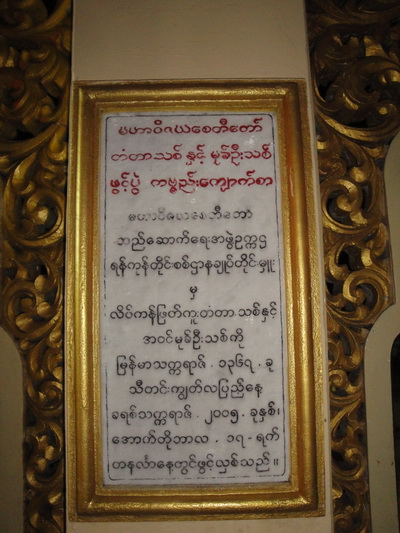 မဟာဝိဇယစေတီတော်
တံတာသစ် နှင့် မုခ်ဦးသစ်
ဖွင့်ပွဲ ကမ္ဗည်းကျောက်စာ
မဟာဝိဇယစေတီတော်
တည်ဆောက်ရေးအဖွဲ့ဥက္ကဋ္ဌ
ရန်ကုန်တိုင်းစစ်ဌာနချုပ်တိုင်းမှူး
မှ
လိပ်ကန်ဖြတ်ကူးတံတာသစ်နှင့်
အဝင်မုခ်ဦးသစ်ကို
မြန်မာသက္ကရာဇ် . ၁၃၆၇ . ခု
သီတင်းကျွတ်လပြည့်နေ့
ခရစ်သက္ကရာဇ် . ၂၀၀၅ . ခုနှစ်၊
အောက်တိုဘာလ . ၁၇ - ရက်
တနင်္လာနေ့တွင်ဖွင့်လှစ်သည် ။